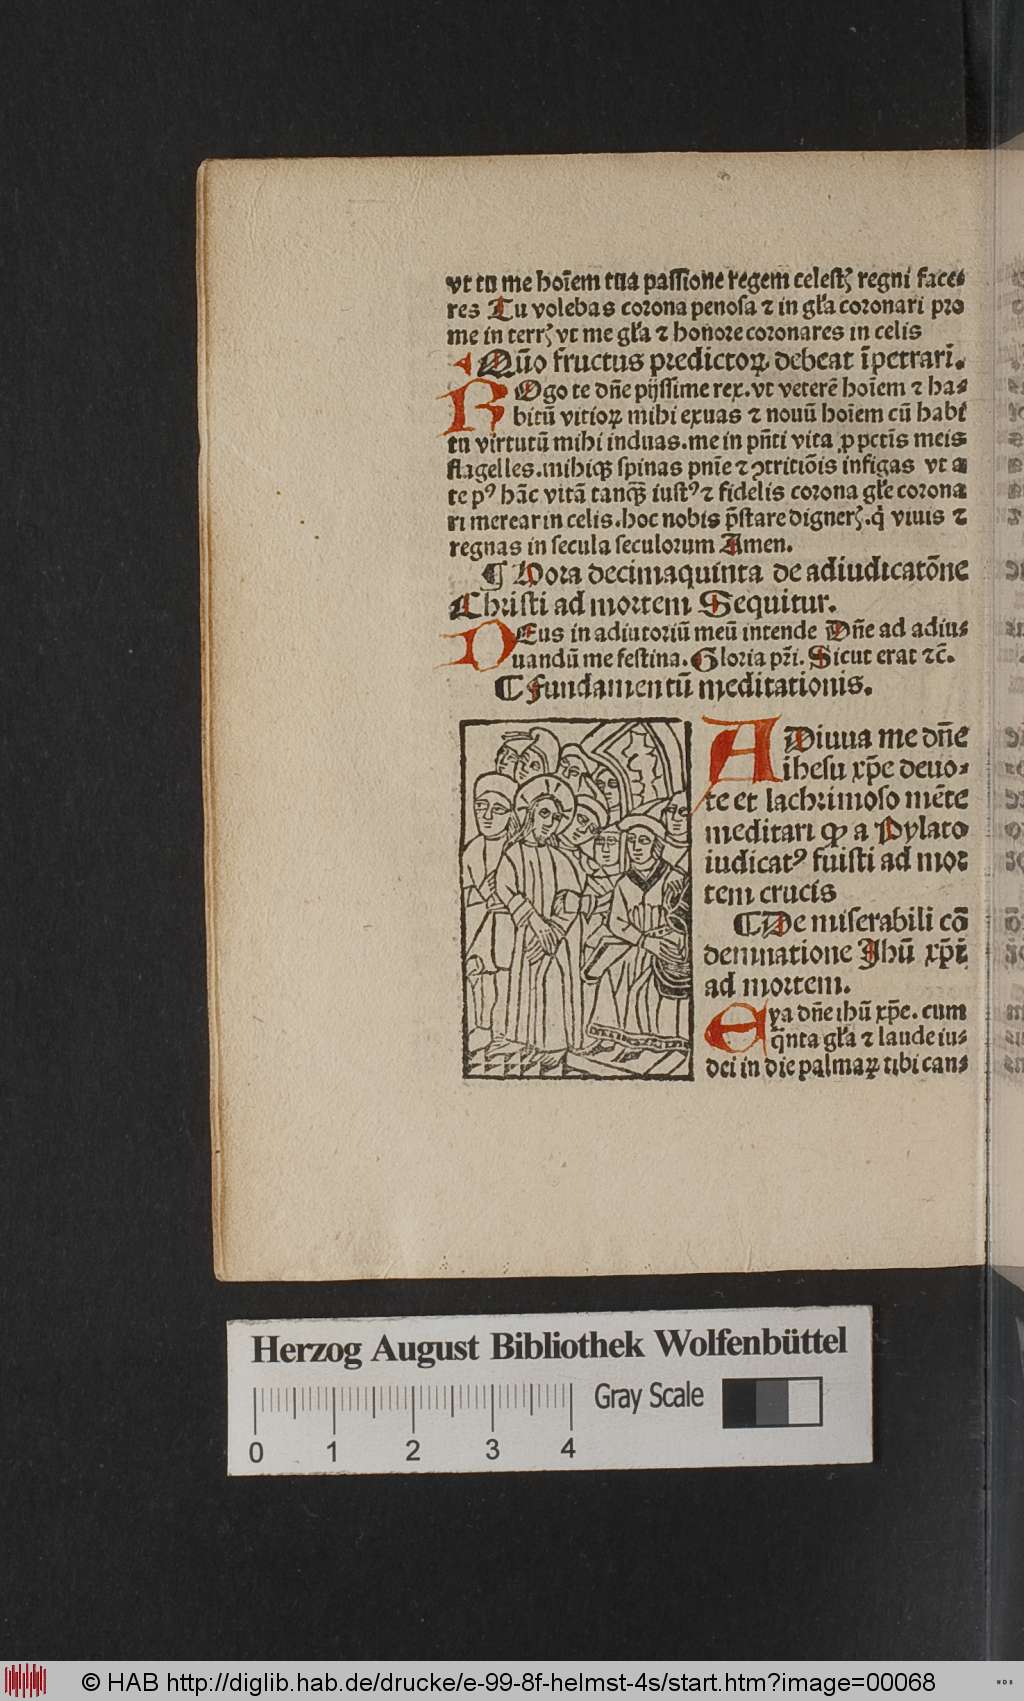 vt tu me hoīem tua paſſione regem celeſtꝫ regni face⸗
res Tu volebas corona penoſa ⁊ in gľa coronari pro
me in terrꝫ vt me gľa ⁊ honore coronares in celis
Quō fructus predictoꝝ debeat īpetrari.
ROgo te dn̄e pijſſime rex. vt veterē hoīem ⁊ ha⸗
bitū vitioꝝ mihi exuas ⁊ nouū hoīem cū habi
tu virtutū mihi induas. me in pn̄ti vita ꝓ pctīs meis
flagelles. mihiqꝫ ſpinas pnīe ⁊ ↄtritiōis infigas vt a
te pꝰ hāc vitā tanqꝫ̄ iuſtꝰ ⁊ fidelis corona gľe corona
ri merear in celis. hoc nobis p̄ſtare dignerꝫ. q̇ viuis ⁊
regnas in ſecula ſeculorum Amen.
¶ Hora decimaquinta de adiudicatōne
Chriſti ad mortem Sequitur.
DEus in adiutoriū meū intende Dn̄e ad adiu⸗
uandū me feſtina. Gloria pr̄i. Sicut erat ⁊c̄.
¶ Fundamentū meditationis.
ADiuua me dn̄e
iheſu xp̄e deuo⸗
te et lachrimoſo mēte
meditari ꝙ a Pylato
iudicatꝰ fuiſti ad mor
tem crucis
¶ De miſerabili cō
demnatione Jhū xp̄i
ad mortem.
Eya dn̄e ihū xp̄e. cum
q̄nta gľa ⁊ laude iu⸗
dei in die palmaꝝ tibi can⸗
Herzog August Bibliothek Wolfenbüttel
Gray Scale
0 1 2 3 4
© HAB http://diglib.hab.de/drucke/e-99-8f-helmst-4s/start.htm?image=00068